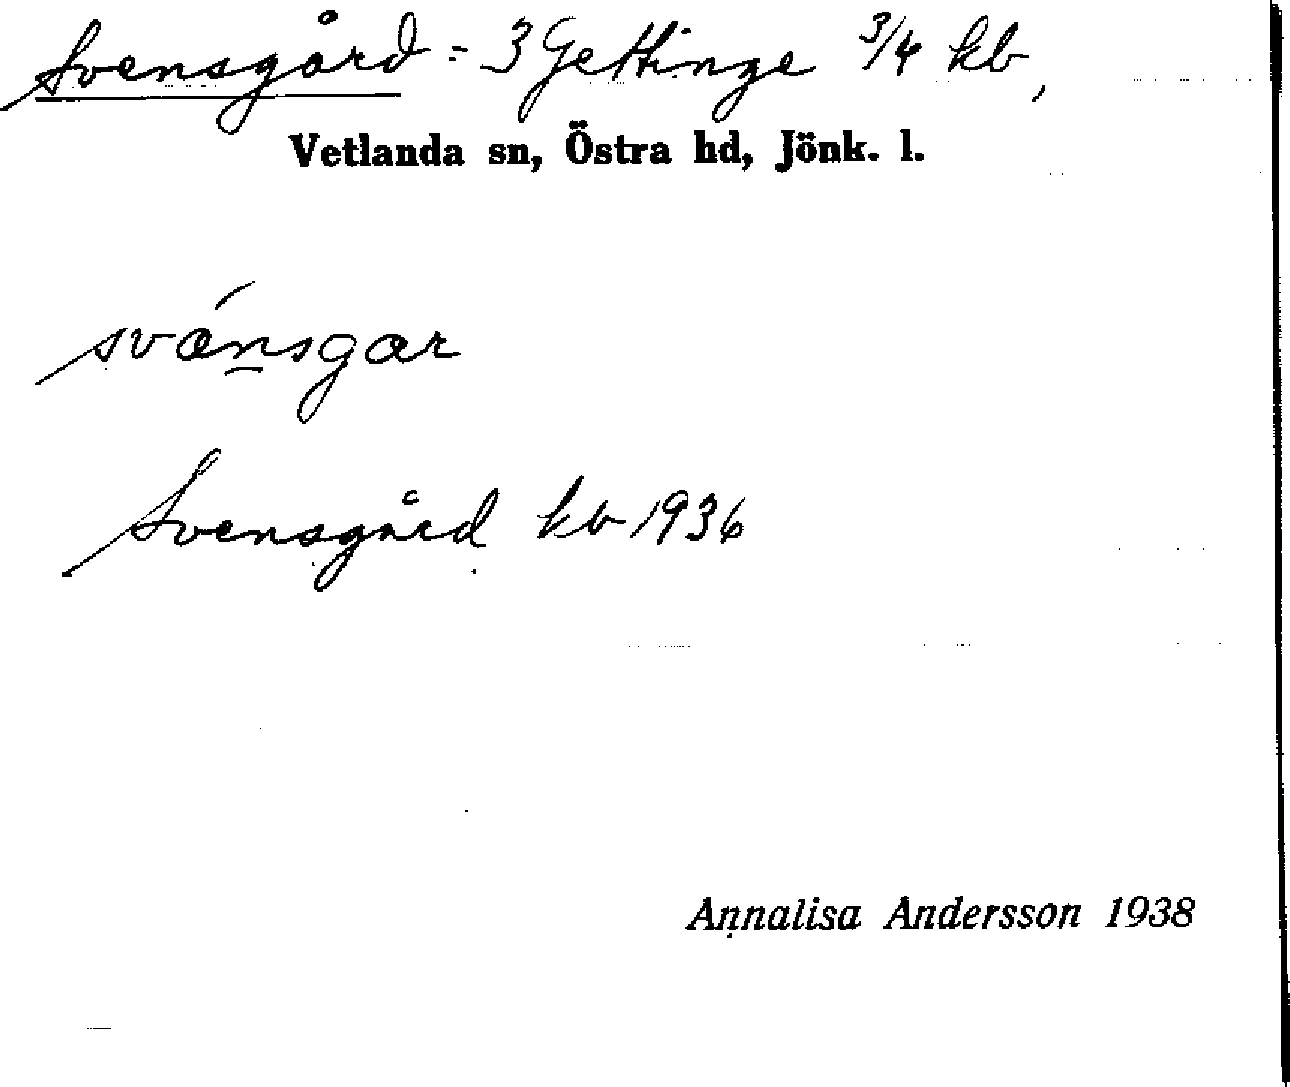 Svensgård = 3 Gettinge 3/4 kb,
Vetlanda sn, Östra hd, Jönk. l.
svänsgar
Svensgård kb 1936
Annalisa Andersson 1938